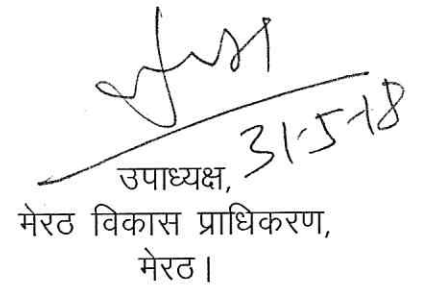 31-5-18
उपाध्यक्ष,
मेरठ विकास प्राधिकरण,
मेरठ।